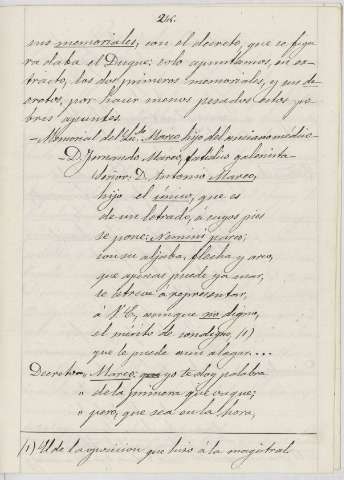 24.
sus memoriales, con el decreto, que se figu
ra daba el Duque: solo apuntamos, en es-
tracto, los dos primeros memoriales, y sus de-
cretos, por hacer menos pesados estos po-
bres apuntes.
- Memorial del Ldo. Marco hijo del anciano médic-
- D. Fernando Marco, fatídico galenista-
Señor: D. Antonio Marco,
hijo el único, que es
de un letrado, a cuyos pies
se pone: Nemini parco;
con su aljaba, flecha y arco,
que apenas puede ya mas,
se atreve á representar,
á V.E, aunque no digno,
el mérito de condigno (1)
que le puede aun alagar....
Decreto= Marco: yo te doy palabra
" de la primera que vaque;
" pero, que sea en la hora,
(1) El de la oposicion que hizo á la magistral